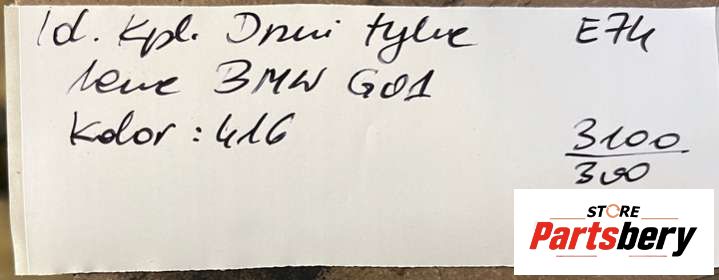 Id. Kpl. Drzwi tylne E74
lewe BMW G01
Kolor : 416
3100
300
STORE
Partsbery